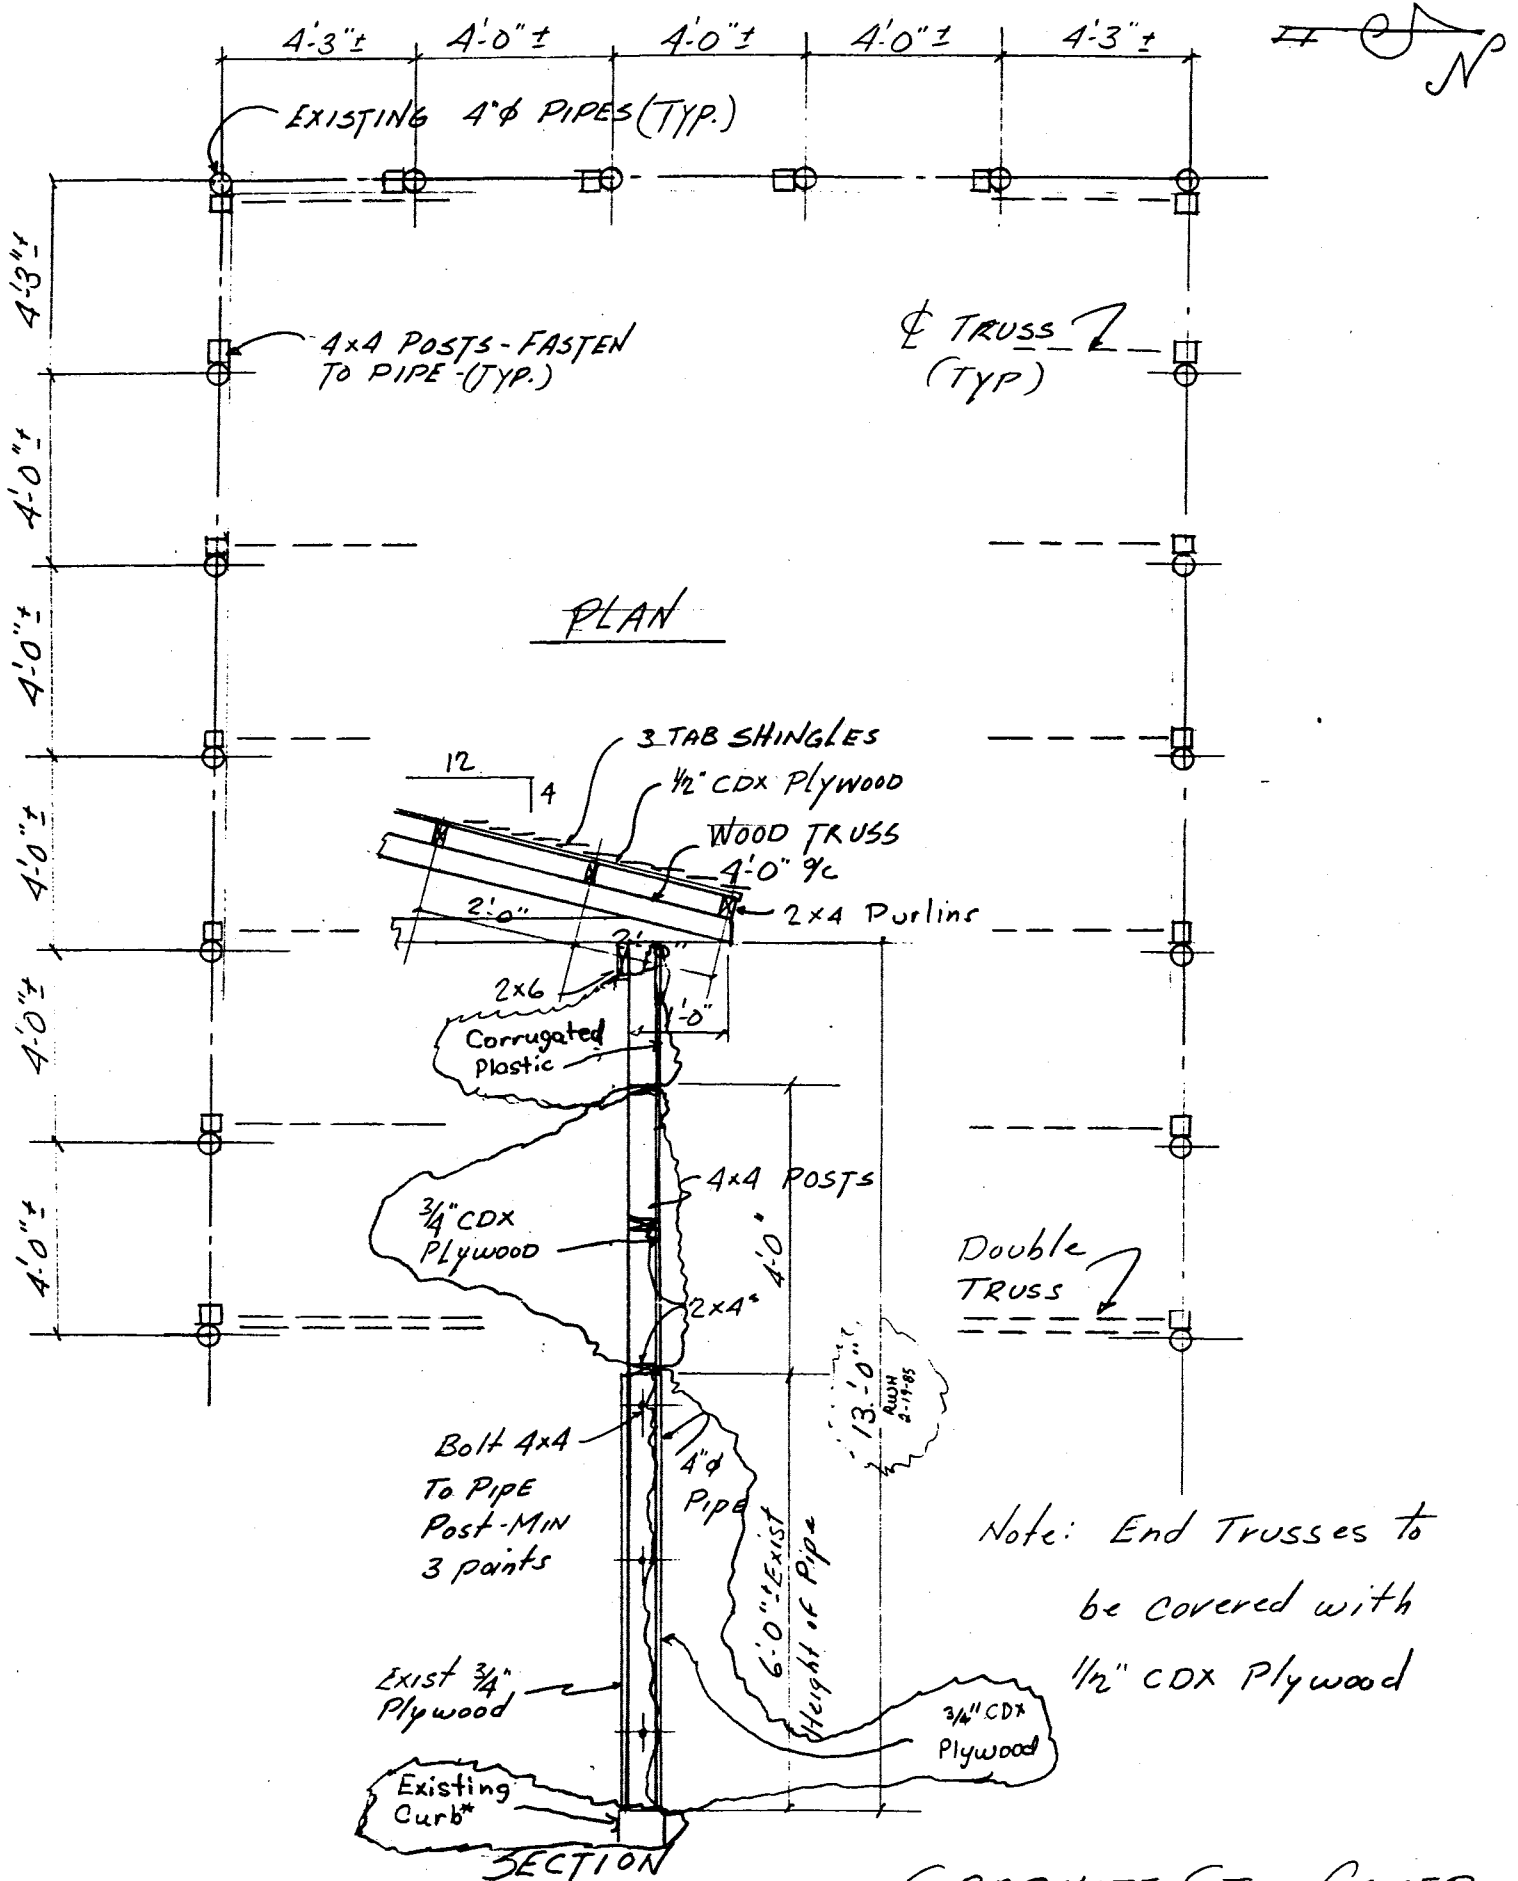 4'-3"±
4'-0"±
4'-0"±
4'-0"±
4'-3"±
N
EXISTING 4"φ PIPES (TYP.)
4'-3"±
4x4 POSTS - FASTEN
TO PIPE - (TYP.)
℄ TRUSS
(TYP)
4'-0"±
4'-0"±
PLAN
3 TAB SHINGLES
12
4
1/2" CDX Plywood
WOOD TRUSS
4'-0" o/c
4'-0"±
2'-0"
2x4 Purlins
2x6
1'-0"
4'-0"±
Corrugated
Plastic
4x4 POSTS
3/4" CDX
PLYWOOD
4'-0"
4'-0"±
Double
TRUSS
2x4s
13'-0"
RWH
2-19-85
Bolt 4x4
To PIPE
Post-MIN
3 points
4"φ
PIPE
6'-0"± Exist
Height of Pipe
Note: End Trusses to
be covered with
1/2" CDX Plywood
Exist 3/4"
Plywood
3/4" CDX
Plywood
Existing
Curb*
SECTION